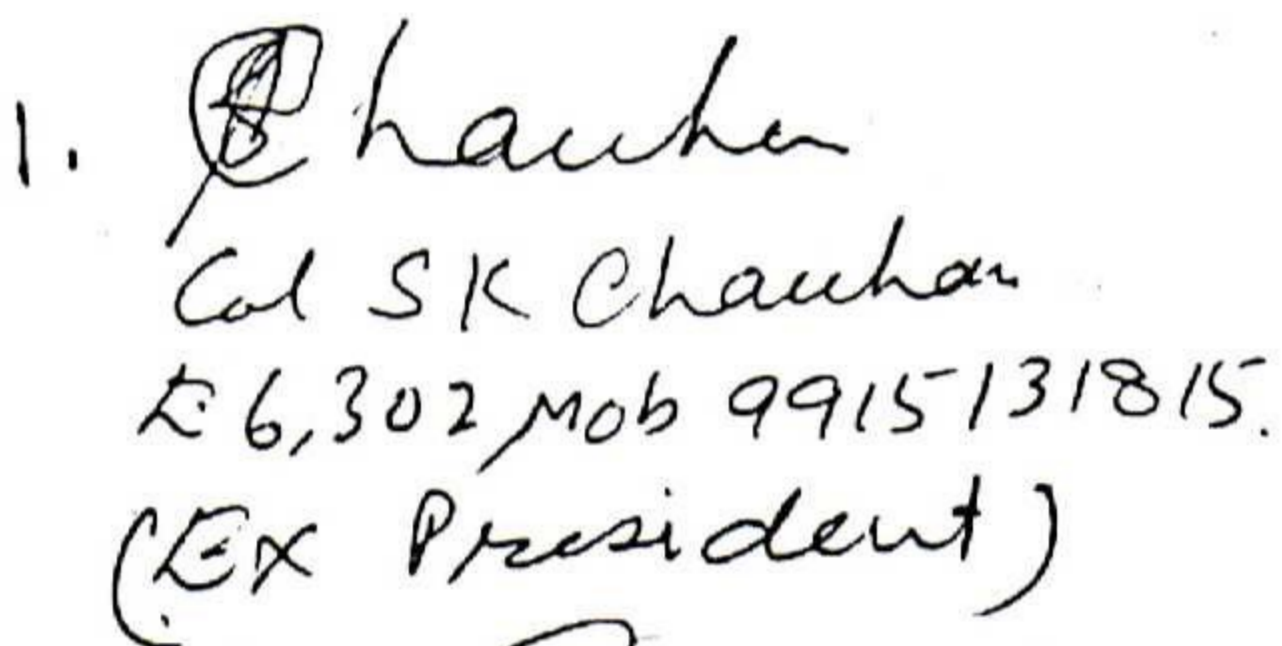 1. Chauhan
Col SK Chauhan
E6,302 Mob 9915131815.
(Ex President)